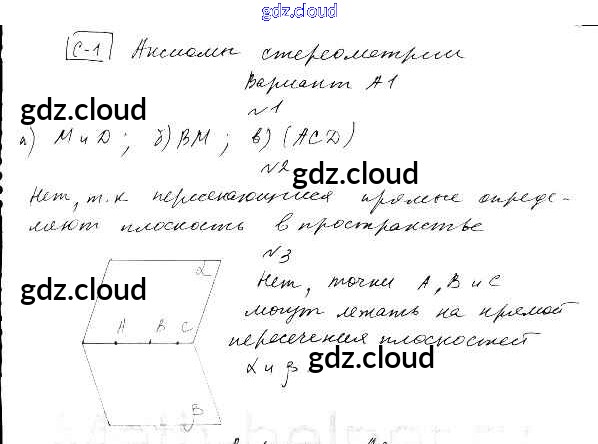 gdz.cloud
С-1 Аксиомы стереометрии
Вариант А1
gdz.cloud
№1
а) М и D; б) ВМ; в) (АСD)
№2
gdz.cloud
Нет, т.к пересекающиеся прямые опреде-
ляют плоскость в пространстве
№3
gdz.cloud
α
Нет, точки А, В и С
могут лежать на прямой
A B C
пересечения плоскостей
gdz.cloud
α и β
β